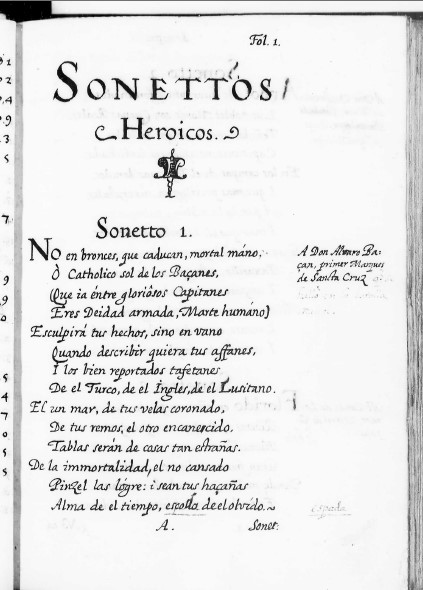 Fol. 1.
SONETTOS
Heroicos.
Sonetto 1.
No en bronces, que caducan, mortal máno,
ò Catholico sol de los Baçanes,
(Que ia éntre gloriôsos Capitanes
Eres Deidad armada, Marte humáno)
Esculpirá tus hechos, sino en vano
Quando describir quiera tus affanes,
I los bien reportados tafetanes
De el Turco, de el Ingles, de el Lusitano.
El un mar, de tus velas coronado,
De tus remos, el otro encanescido,
Tablas serán de cosas tan estrañas.
De la immortalidad, el no cansado
Pinzel las lógre: i sean tus haçañas
Alma de el tiempo, espada de el olvido.
A Don Alvaro Ba-
çan, primer Marques
de Sancta Cruz
espada
A.
Sonet: